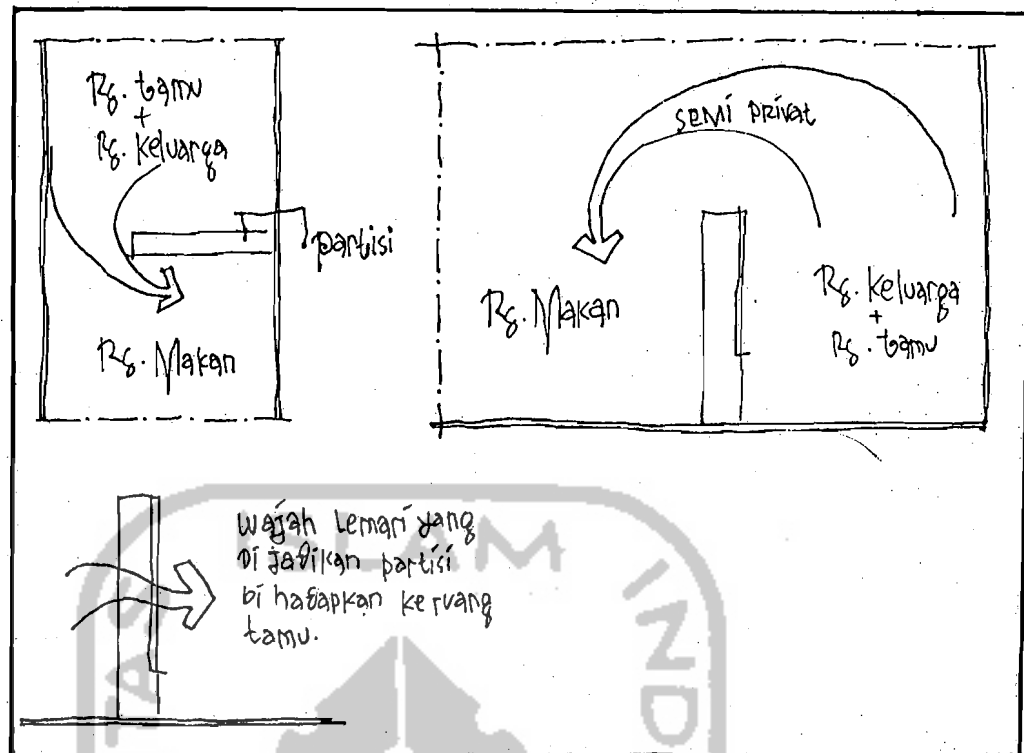 Rg. tamu
+
Rg. Keluarga
partisi
Rg. Makan
semi privat
Rg. Makan
Rg. Keluarga
+
Rg. tamu
wajah lemari yang
di jadikan partisi
di hadapkan ke ruang
tamu.
ISLAM
IND
TAS